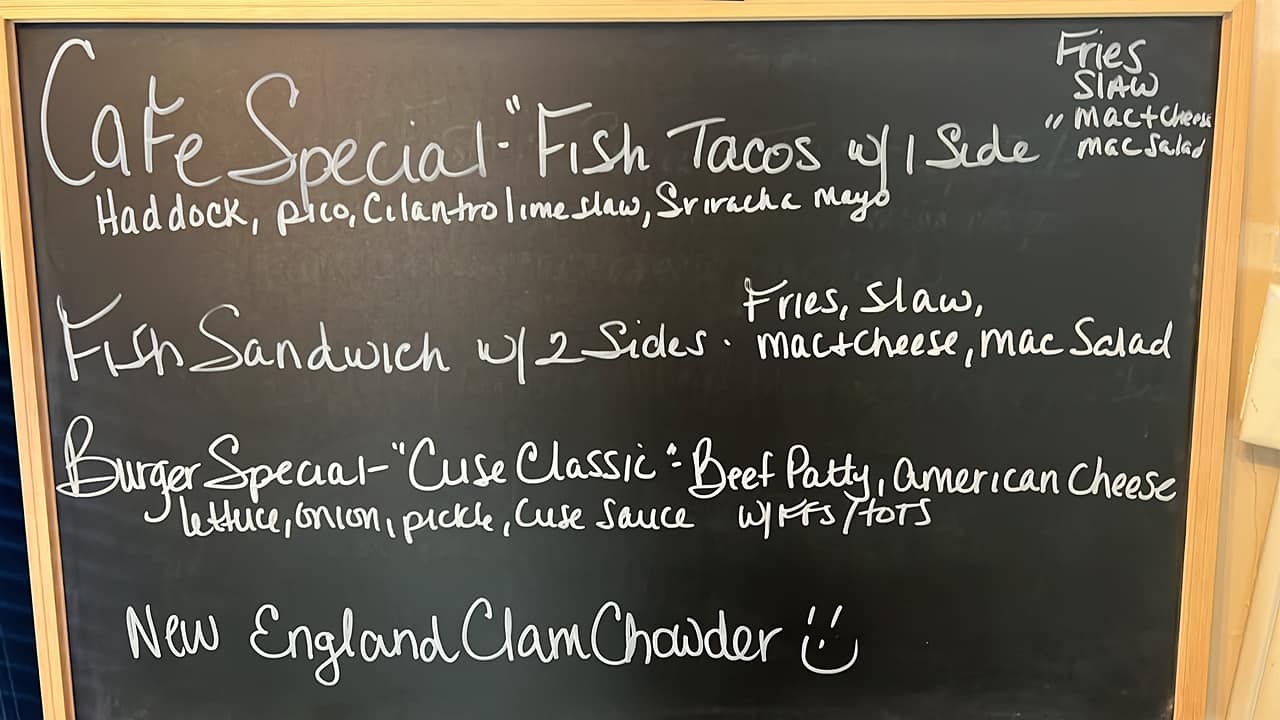 Fries
Slaw
mac+cheese
mac salad
Cafe Special - "Fish Tacos w/ 1 Side"
Haddock, pico, Cilantro lime slaw, Sriracha Mayo
Fries, Slaw,
Fish Sandwich w/ 2 Sides. mac+cheese, mac Salad
Burger Special - "Cuse Classic": Beef Patty, American Cheese
lettuce, onion, pickle, Cuse Sauce w/FFs/tots
New England Clam Chowder